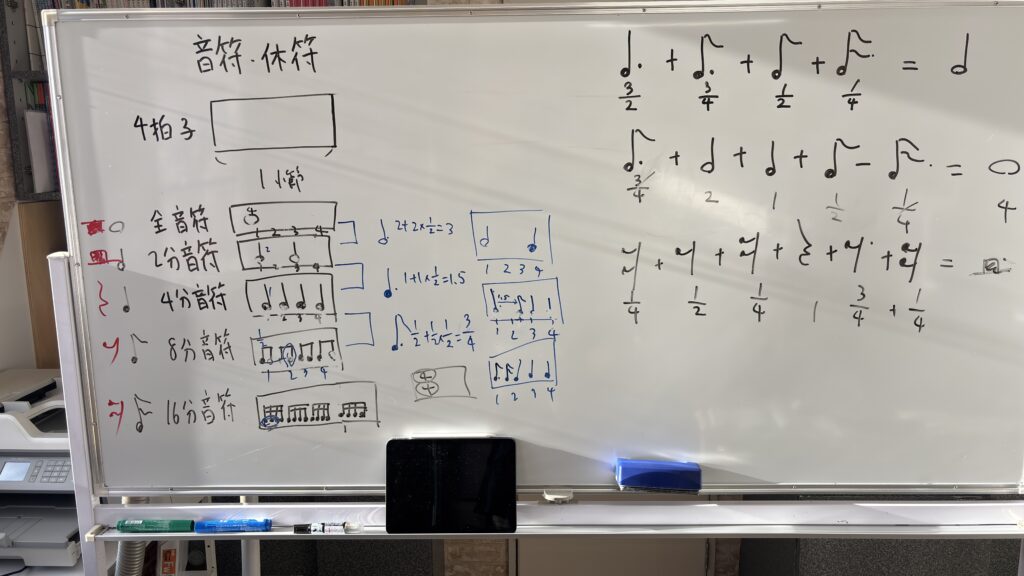 音符・休符
4拍子
1小節
全音符
1 2 3 4
2分音符
1 2 3 4
4分音符
1 2 3 4
8分音符
1 2 3 4
16分音符
1
2+2×1/2=3
1+1×1/2=1.5
1/2+1/2×1/2=3/4
1 2 3 4
1 2 3 4
1 2 3 4
+ + + =
3/2 3/4 1/2 1/4
+ + + - =
3/4 2 1 1/2 1/4 4
+ + + + + =
1/4 1/2 1/4 1 3/4 + 1/4